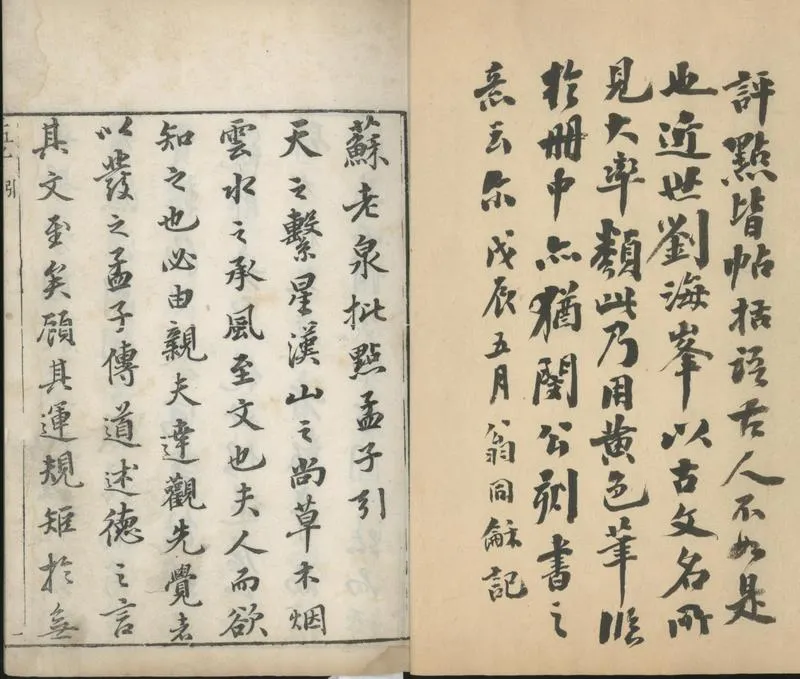 評點皆帖括語古人不如是
也近世劉海峯以古文名所
見大率類此乃用黄色筆臨
於冊中亦猶閔公刻書之
意云尔戊辰五月翁同龢記
蘇老泉批點孟子引
天之繫星漢山之尚草木烟
雲水之承風至文也夫人而欲
知之也必由親夫達觀先覺者
以發之孟子傳道述德之言
其文至矣顧其運規矩於無
引
一